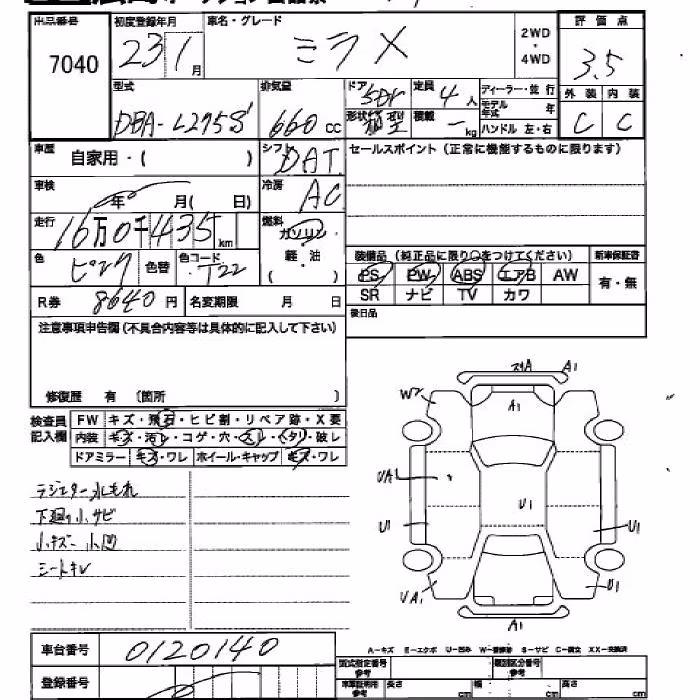 出品番号 初度登録年月 車名・グレード 2WD・4WD 評価点
7040 23 1月 ミラX 3.5
型式 排気量 ドア 5Dr 定員 4人 ディーラー・並行 外装 内装
DBA-L275S 660cc 形状 箱型 積載 ー kg モデル年式 年 C C
ハンドル 左・右
車歴 自家用・( ) シフト DAT セールスポイント(正常に機能するものに限ります)
車検 年 月( 日) 冷房 AC
走行 16万0千435km 燃料 ガソリン
軽・油
( )
色 ピンク 色替 色コード T22
装備品(純正品に限り○をつけてください) 新車保証書
PS PW ABS エアB AW 有・無
SR ナビ TV カワ
R券 8640円 名変期限 月 日 後日品
注意事項申告欄(不具合内容等は具体的に記入して下さい)
修復歴 有 〔箇所 〕
検査員記入欄 FW キズ・飛石・ヒビ割・リペア跡・X要
内装 キズ・汚レ・コゲ・穴・スレ・ヘタリ・破レ
ドアミラー キズ・ワレ ホイール・キャップ キズ・ワレ
ラジエター水もれ
下廻り小サビ
小キズー小凹
シートキレ
A1
W2
A1
UA1
U1
U1
U1
UA1
U1
A1
A-キズ E-エクボ U-凹み W-補修跡 S-サビ C-腐食 XX-交換済
車台番号 0120140
型式指定番号 参考 類別区分番号 参考
登録番号
車車証明用 参考 長さ cm 幅 cm 高さ cm